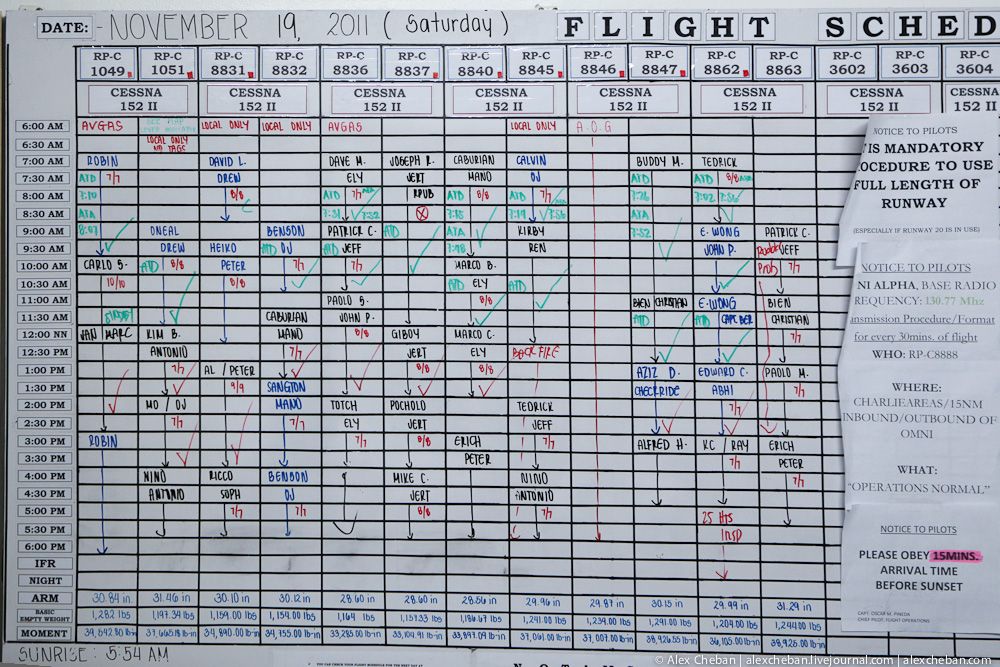 DATE: - NOVEMBER 19, 2011 (Saturday) FLIGHT SCHED
RP-C RP-C RP-C RP-C RP-C RP-C RP-C RP-C RP-C RP-C RP-C RP-C RP-C RP-C RP-C
1049 1051 8831 8832 8836 8837 8840 8845 8846 8847 8862 8863 3602 3603 3604
CESSNA CESSNA CESSNA CESSNA CESSNA CESSNA CESSNA CESSNA
152 II 152 II 152 II 152 II 152 II 152 II 152 II 152 II
6:00 AM AVGAS LOCAL ONLY LOCAL ONLY AVGAS LOCAL ONLY A.O.G
6:30 AM LOCAL ONLY
NO TAGS
7:00 AM ROBIN DAVID L. DAVE M. JOSEPH R. CABURIAN CALVIN BUDDY M. TEDRICK
7:30 AM ATD 7/7 DREW ELY JERT MANO OJ ATD ATD 8/8
8:00 AM 7:10 8/8 ATD 7/7 RPUB ATD 8/8 ATD 7/7 7:26 7:02 7:56
8:30 AM ATA 7:31 7:52 7:15 7:19 7:56 ATA
9:00 AM 8:07 ONEAL BENSON PATRICK C. ATD ATA KIRBY 7:52 E. WONG PATRICK C.
9:30 AM DREW HEIKO ATD OJ ATD JEFF 7:48 REN JOHN P. JEFF
10:00 AM CARLO S. ATD 8/8 PETER 7/7 7/7 MARCO B. Prob 7/7
10:30 AM 10/10 8/8 ATD ELY ATD
11:00 AM PAOLO S. 8/8 BIEN CHRISTIAN E. WONG BIEN
11:30 AM CABURIAN JOHN P. ATD ATD CAPT. BER CHRISTIAN
12:00 NN VAN MARC KIM B. MANO 8/8 GIBOY MARCO C. 7/7
12:30 PM ANTONIO 7/7 JERT ELY BACKFIRE
1:00 PM 7/7 AL / PETER 8/8 8/8 AZIZ D. EDWARD C. PAOLO M.
1:30 PM 9/9 SANGTON CHECKRIDE ABHI 7/7
2:00 PM MO / OJ MANO TOTCH POCHOLO TEDRICK 7/7
2:30 PM 7/7 ELY JERT JEFF
3:00 PM ROBIN 7/7 8/8 ERICH 7/7 ALFRED H. KC / RAY ERICH
3:30 PM PETER 7/7 PETER
4:00 PM NINO RICCO BENSON MIKE C. NINO 7/7
4:30 PM ANTONIO SOPH OJ JERT ANTONIO
5:00 PM 7/7 7/7 7/7 8/8 7/7 25 HRS
5:30 PM INSP
6:00 PM
IFR
NIGHT
ARM 30.84 in 31.46 in 30.10 in 30.12 in 28.60 in 28.60 in 28.56 in 29.96 in 29.87 in 30.15 in 29.99 in 31.29 in
BASIC
EMPTY WEIGHT 1,282 lbs 1,197.34 lbs 1,159.00 lbs 1,154.00 lbs 1,164 lbs 1,157.33 lbs 1,186.67 lbs 1,241.00 lbs 1,239.00 lbs 1,291.00 lbs 1,204.00 lbs 1,244.00 lbs
MOMENT 34,890.00 lb-in 34,755.00 lb-in 33,285.00 lb-in 33,104.91 lb-in 33,897.09 lb-in 37,061.00 lb-in 37,007.00 lb-in 38,926.55 lb-in 36,105.00 lb-in 38,925.00 lb-in
SUNRISE: 5:54 AM
NOTICE TO PILOTS
IS MANDATORY
OCEDURE TO USE
FULL LENGTH OF
RUNWAY
(ESPECIALLY IF RUNWAY 20 IS IN USE)
NOTICE TO PILOTS
NI ALPHA, BASE RADIO
REQUENCY: 130.77 Mhz
ansmission Procedure/Format
for every 30mins. of flight
WHO: RP-C8888
WHERE:
CHARLIEAREAS/15NM
INBOUND/OUTBOUND OF
OMNI
WHAT:
"OPERATIONS NORMAL"
NOTICE TO PILOTS
PLEASE OBEY 15MINS.
ARRIVAL TIME
BEFORE SUNSET
CAPT. OSCAR M. PINEDA
CHIEF PILOT, FLIGHT OPERATIONS
© Alex Cheban | alexcheban.livejournal.com | alexcheban.com